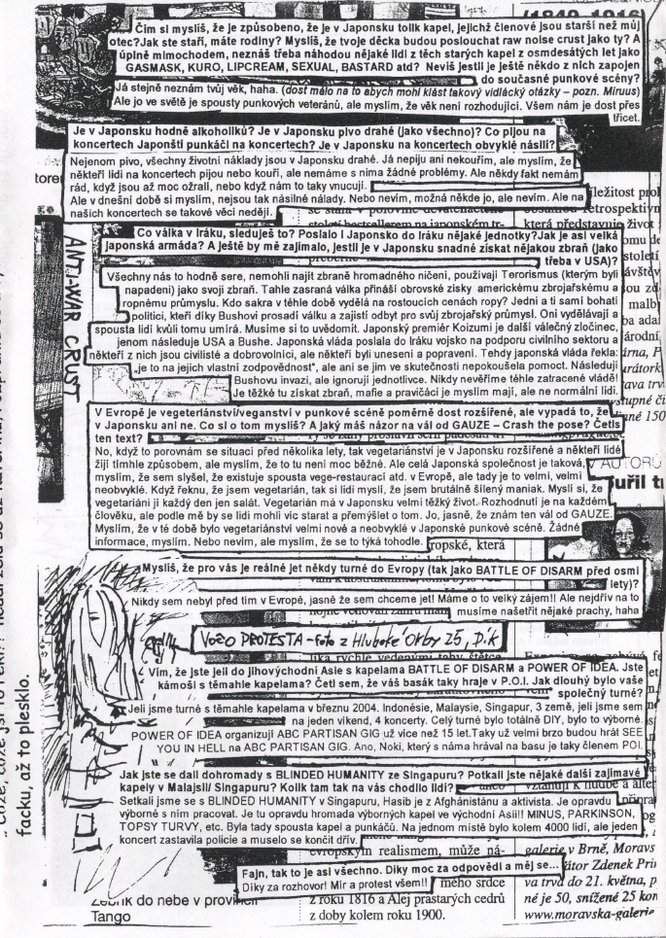 (1840-1916)
Čím si myslíš, že je způsobeno, že je v Japonsku tolik kapel, jejichž členové jsou starší než můj
otec?Jak ste staří, máte rodiny? Myslíš, že tvoje děcka budou poslouchat raw noise crust jako ty? A
úplně mimochodem, neznáš třeba náhodou nějaké lidi z těch starých kapel z osmdesátých let jako
GASMASK, KURO, LIPCREAM, SEXUAL, BASTARD atd? Nevíš jestli je ještě někdo z nich zapojen
do současné punkové scény?
Já stejně neznám tvůj věk, haha. (dost málo na to abych mohl klást takový vidlácký otázky – pozn. Miruus)
Ale jo ve světě je spousty punkových veteránů, ale myslím, že věk není rozhodující. Všem nám je dost přes
třicet.
Je v Japonsku hodně alkoholiků? Je v Japonsku pivo drahé (jako všechno)? Co pijou na
koncertech Japonští punkáči na koncertech? Je v Japonsku na koncertech obvyklé násilí?
Nejenom pivo, všechny životní náklady jsou v Japonsku drahé. Já nepiju ani nekouřím, ale myslím, že
někteří lidi na koncertech pijou nebo kouří, ale nemáme s nima žádné problémy. Ale někdy fakt nemám
rád, když jsou až moc ožralí, nebo když nám to taky vnucují.
Ale v dnešní době si myslím, nejsou tak násilné nálady. Nebo nevím, možná někde jo, ale nevím. Ale na
našich koncertech se takové věci nedějí.
Co válka v Iráku, sleduješ to? Poslalo i Japonsko do Iráku nějaké jednotky?Jak je asi velká
japonská armáda? A ještě by mě zajímalo, jestli je v Japonsku snadné získat nějakou zbraň (jako
třeba v USA)?
ANTI-WAR CRUST
Všechny nás to hodně sere, nemohli najít zbraně hromadného ničení, používají Terorismus (kterým byli
napadeni) jako svoji zbraň. Tahle zasraná válka přináší obrovské zisky americkému zbrojařskému a
ropnému průmyslu. Kdo sakra v téhle době vydělá na rostoucích cenách ropy? Jedni a ti sami bohatí
politici, kteří díky Bushovi prosadí válku a zajistí odbyt pro svůj zbrojařský průmysl. Oni vydělávají a
spousta lidí kvůli tomu umírá. Musíme si to uvědomit. Japonský premiér Koizumi je další válečný zločinec,
jenom následuje USA a Bushe. Japonská vláda poslala do Iráku vojsko na podporu civilního sektoru a
někteří z nich jsou civilisté a dobrovolníci, ale někteří byli uneseni a popravení. Tehdy japonská vláda řekla:
„je to na jejich vlastní zodpovědnost", ale ani se jim ve skutečnosti nepokoušela pomoct. Následují
Bushovu invazi, ale ignorují jednotlivce. Nikdy nevěříme téhle zatracené vládě!
Je těžké tu získat zbraň, mafie a pravičáci je myslím mají, ale ne normální lidi.
V Evropě je vegeteriánství/veganství v punkové scéně poměrně dost rozšířené, ale vypadá to, že
v Japonsku ani ne. Co si o tom myslíš? A jaký máš názor na vál od GAUZE – Crash the pose? Četls
ten text?
No, když to porovnám se situací před několika lety, tak vegetariánství je v Japonsku rozšířené a někteří lidé
žijí tímhle způsobem, ale myslím, že to tu není moc běžné. Ale celá Japonská společnost je taková,
myslím, že sem slyšel, že existuje spousta vege-restaurací atd. v Evropě, ale tady je to velmi, velmi
neobvyklé. Když řeknu, že jsem vegetarián, tak si lidi myslí, že jsem brutálně šílený maniak. Myslí si, že
vegetariáni jí každý den jen salát. Vegetarián má v Japonsku velmi těžký život. Rozhodnutí je na každém
člověku, ale podle mě by se lidi mohli víc starat a přemýšlet o tom. Jo, jasně, že znám ten vál od GAUZE.
Myslím, že v té době bylo vegetariánství velmi nové a neobvyklé v Japonské punkové scéně. Žádné
informace, myslím. Nebo nevím, ale myslím, že se to týká tohodle.
Myslíš, že pro vás je reálné jet někdy turné do Evropy (tak jako BATTLE OF DISARM před osmi
lety)?
Nikdy sem nebyl před tím v Evropě, jasně že sem chceme jet! Máme o to velký zájem!! Ale nejdřív na to
musíme našetřit nějaké prachy, haha
VOŽO PROTESTA – foto z Hluboké Orby 25, D.K
Vím, že jste jeli do jihovýchodní Asie s kapelama BATTLE OF DISARM a POWER OF IDEA. Jste
kámoši s těmahle kapelama? Četl sem, že váš basák taky hraje v P.O.I. Jak dlouhý bylo vaše
společný turné?
Jeli jsme turné s těmahle kapelama v březnu 2004. Indonésie, Malaysie, Singapur, 3 země, jeli jsme sem
na jeden víkend, 4 koncerty. Celý turné bylo totálně DIY, bylo to výborné.
POWER OF IDEA organizují ABC PARTISAN GIG už více než 15 let.Taky už velmi brzo budou hrát SEE
YOU IN HELL na ABC PARTISAN GIG. Ano, Noki, který s náma hrával na basu je taky členem POI.
Jak jste se dali dohromady s BLINDED HUMANITY ze Singapuru? Potkali jste nějaké další zajímavé
kapely v Malajsii/ Singapuru? Kolik tam tak na vás chodilo lidí?
Setkali jsme se s BLINDED HUMANITY v Singapuru, Hasib je z Afghánistánu a aktivista. Je opravdu
výborné s ním pracovat. Je tu opravdu hromada výborných kapel ve východní Asii!! MINUS, PARKINSON,
TOPSY TURVY, etc. Byla tady spousta kapel a punkáčů. Na jednom místě bylo kolem 4000 lidí, ale jeden
koncert zastavila policie a muselo se končit dřív.
Fajn, tak to je asi všechno. Díky moc za odpovědi a měj se...
Díky za rozhovor! Mír a protest všem!!
facku, až to plesklo.
ropské, která
evropským realismem, může ná-
mého srdce
z roku 1816 a Alej prastarých cedrů
z doby kolem roku 1900.
do nebe v provincii
Tango
galerie v Brně, Moravs
átor Zdenek Prim
va trvá do 21. května, p
né je 50, snížené 25 kor
www.moravska-galeri